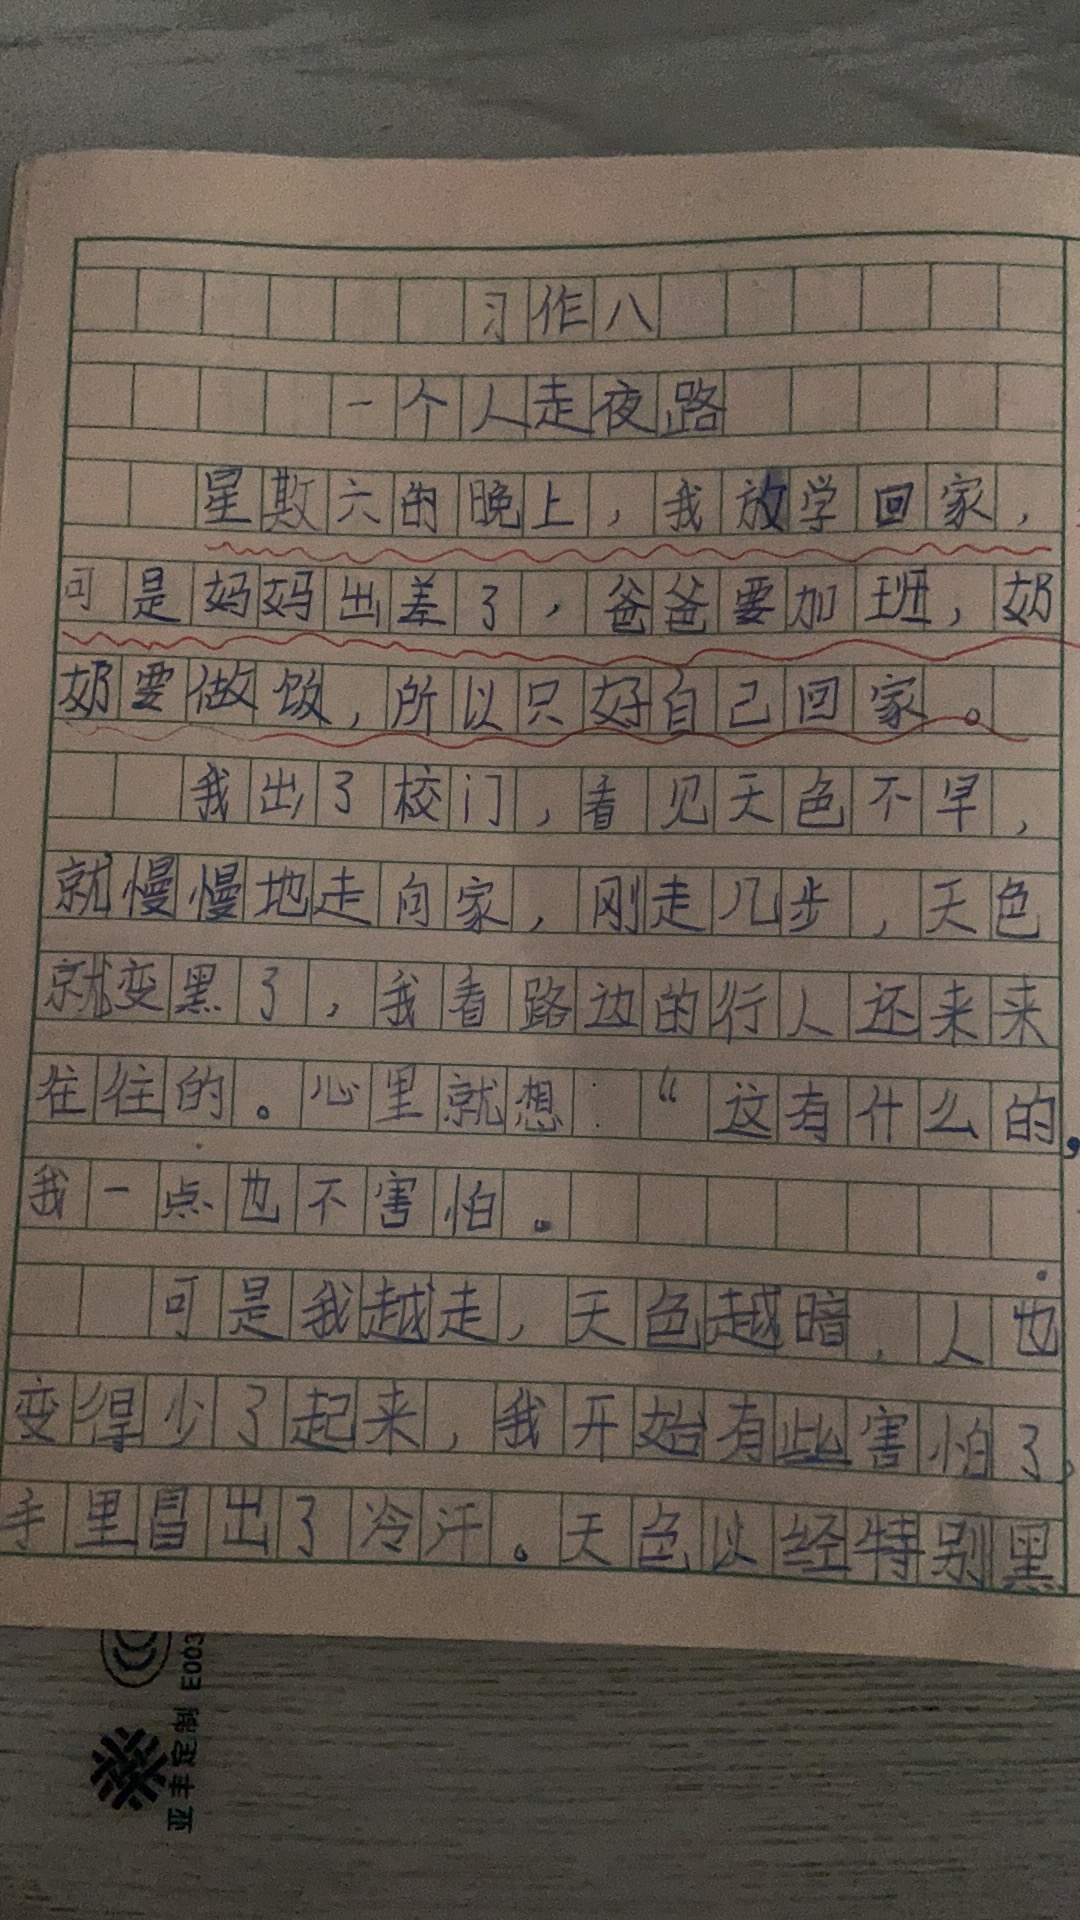 习作八
一个人走夜路
星期六的晚上，我放学回家，
可是妈妈出差了，爸爸要加班，奶
奶要做饭，所以只好自己回家。
我出了校门，看见天色不早，
就慢慢地走向家，刚走几步，天色
就变黑了，我看路边的行人还来来
往往的。心里就想：“这有什么的，
我一点也不害怕。
可是我越走，天色越暗，人也
变得少了起来，我开始有些害怕了，
手里冒出了冷汗。天色以经特别黑
E003
亚丰定制